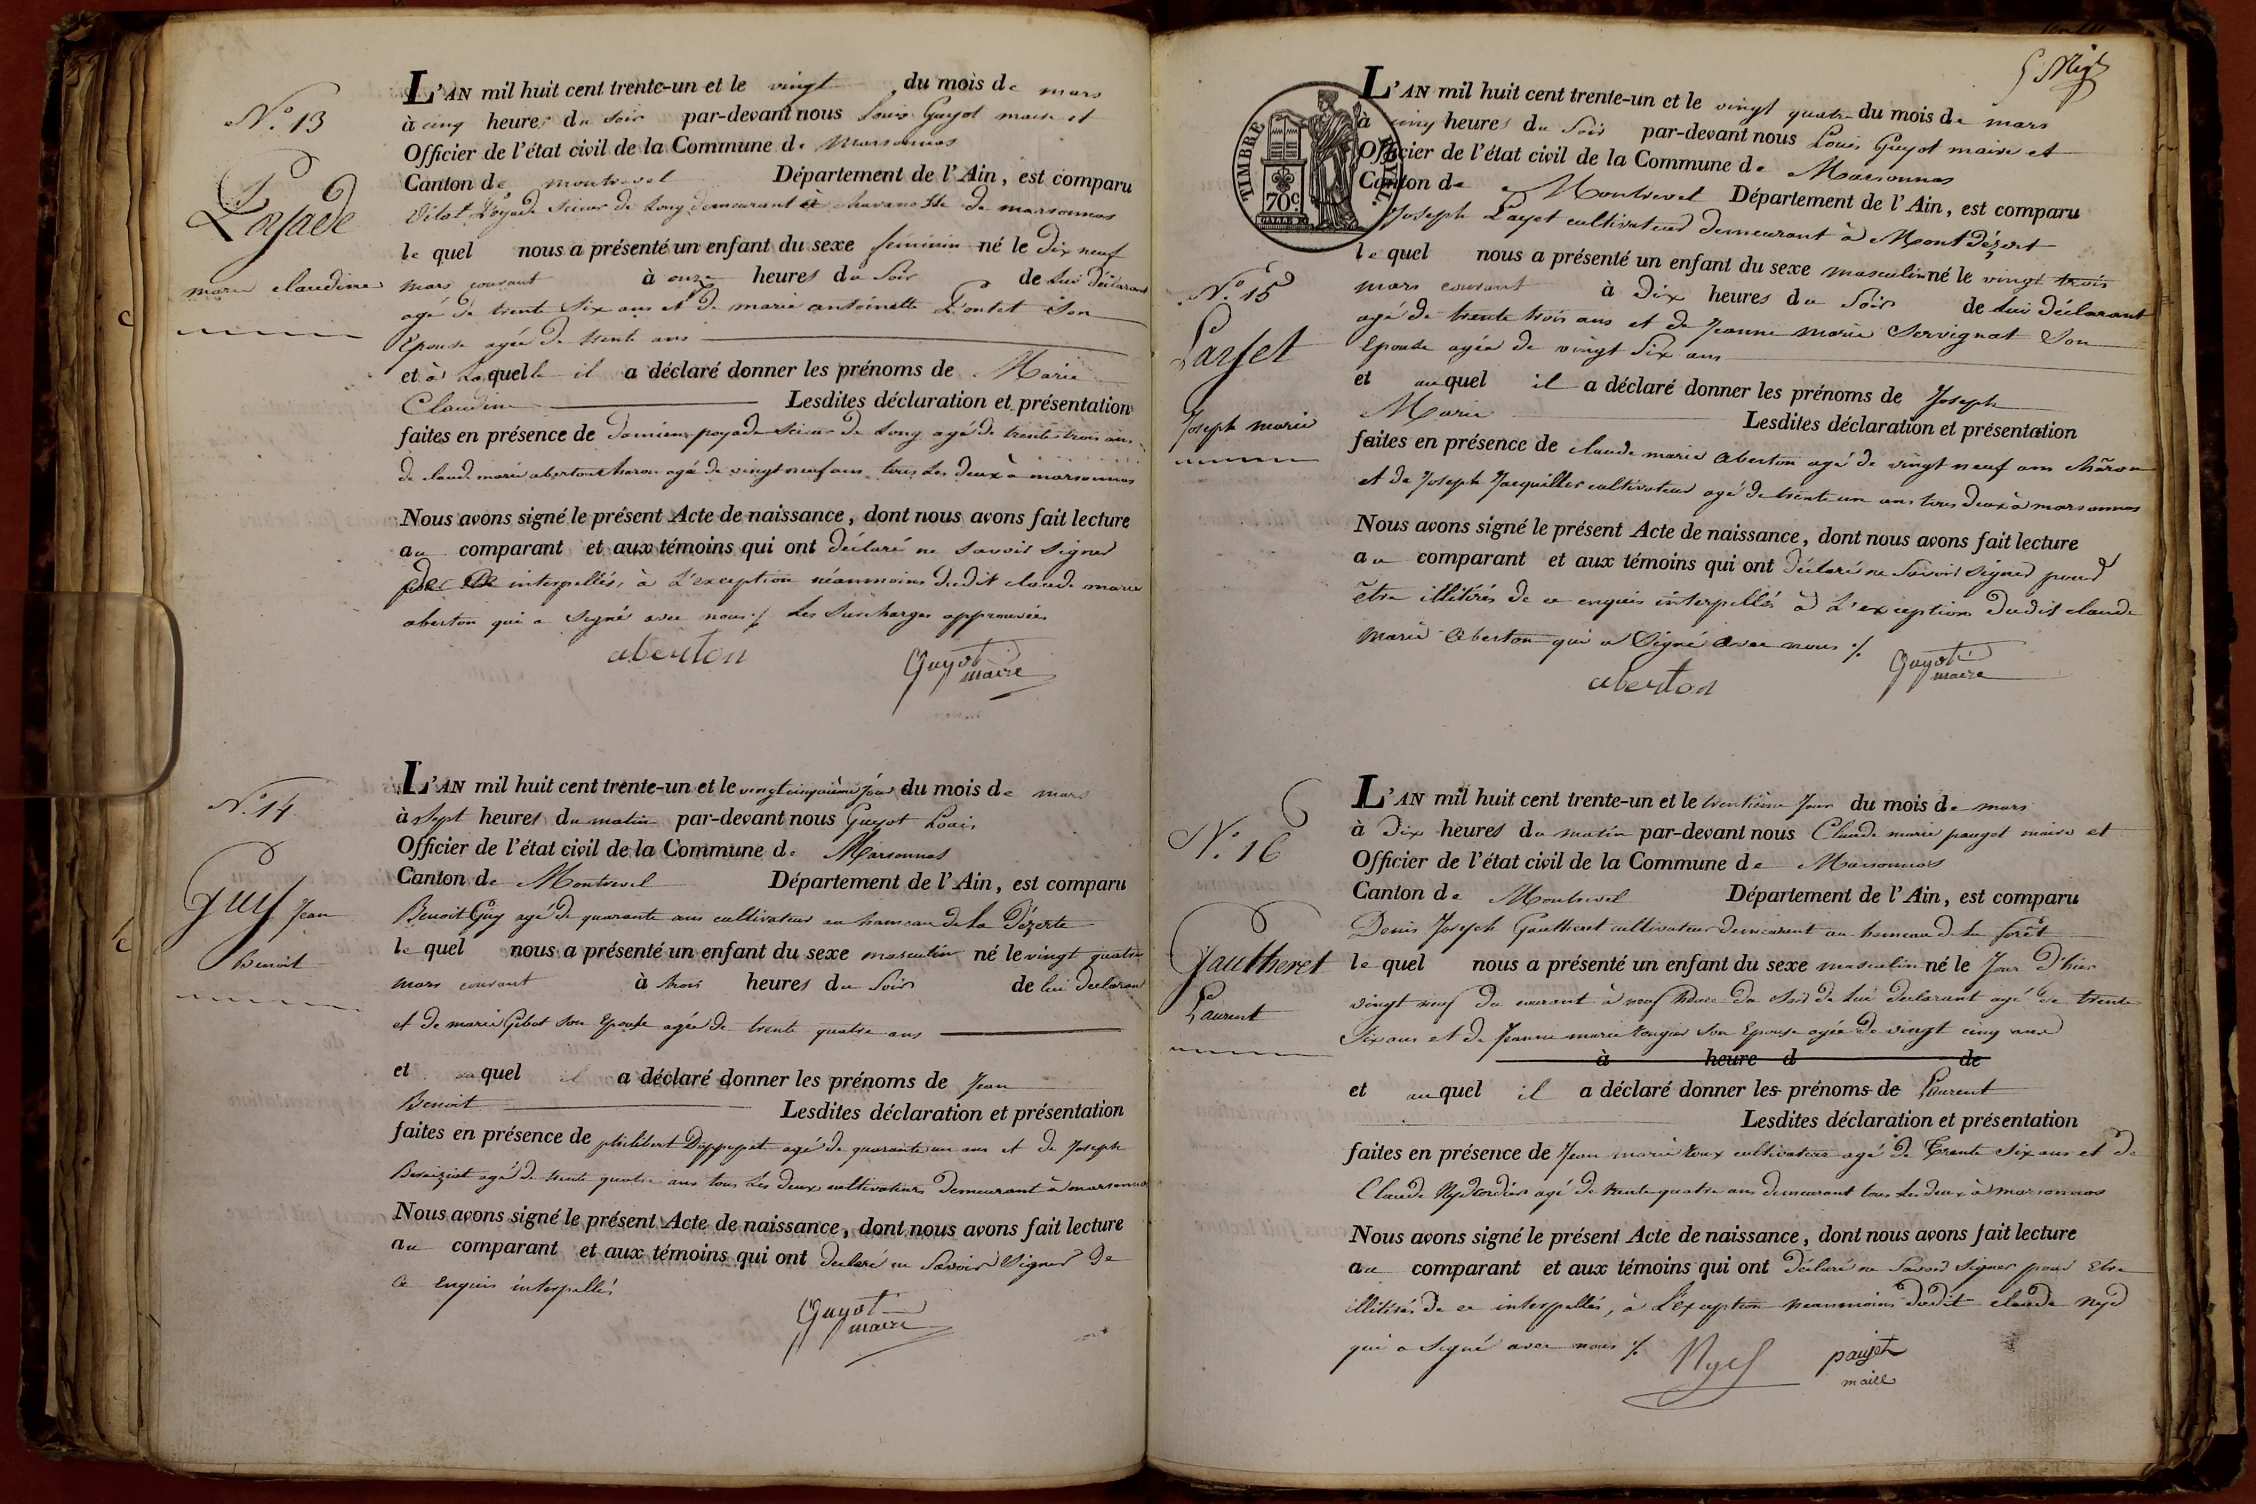 N.º 13
Poyade
marie claudine
L'AN mil huit cent trente-un et le vingt du mois de mars
à cinq heures du soir par-devant nous Louis Guyot maire et
Officier de l'état civil de la Commune de Marsonnas
Canton de montrevel Département de l'Ain, est comparu
Poyade scieur de Long demeurant à de marsonnas
le quel nous a présenté un enfant du sexe féminin né le dix neuf
mars courant à onze heures du soir de lui déclarant
agé de trente six ans et de marie antoinette Pontet son
Epouse agée de trente ans
et à Laquelle il a déclaré donner les prénoms de Marie
Claudine Lesdites déclaration et présentation
faites en présence de damien poyade scieur de Long agé de trente trois ans
de claude marie aberton charon agé de vingt neuf ans tous Les deux à marsonnas
Nous avons signé le présent Acte de naissance, dont nous avons fait lecture
au comparant et aux témoins qui ont déclaré ne savoir signer
interpellés, à L'exception néanmoins dudit claude marie
aberton qui a signé avec nous ./. Les surcharges approuvées
aberton
Guyot maire
N.º 14
Guy Jean
Benoit
L'AN mil huit cent trente-un et le vingt cinquième jour du mois de mars
à sept heures du matin par-devant nous Guyot Louis
Officier de l'état civil de la Commune de Marsonnas
Canton de Montrevel Département de l'Ain, est comparu
Benoit Guy agé de quarante ans cultivateur au hameau de la Dézerte
le quel nous a présenté un enfant du sexe masculin né le vingt quatre
mars courant à trois heures du soir de lui declarant
et de marie Gibot son Epouse agée de trente quatre ans
et au quel il a déclaré donner les prénoms de Jean
Benoit Lesdites déclaration et présentation
faites en présence de philibert agé de quarante un ans et de Joseph
agé de trente quatre ans tous Les deux cultivateurs demeurant à marsonnas
Nous avons signé le présent Acte de naissance, dont nous avons fait lecture
au comparant et aux témoins qui ont declaré ne savoir signer de
ce enquis interpellés
Guyot maire
TIMBRE ROYAL
70c
N.º 15
Joseph marie
L'AN mil huit cent trente-un et le vingt quatre du mois de mars
à cinq heures du soir par-devant nous Louis Guyot maire et
Officier de l'état civil de la Commune de Marsonnas
Canton de Montrevel Département de l'Ain, est comparu
Joseph cultivateur demeurant à Mont Dézert
le quel nous a présenté un enfant du sexe masculin né le vingt trois
mars courant à dix heures du soir de lui déclarant
agé de trente trois ans et de Jeanne Marie Servignat son
Epouse agée de vingt six ans
et au quel il a déclaré donner les prénoms de Joseph
Marie Lesdites déclaration et présentation
faites en présence de claude marie aberton agé de vingt neuf ans chăron
et de Joseph Jacquiller cultivateur agé de trente un ans tous deux à marsonnas
Nous avons signé le présent Acte de naissance, dont nous avons fait lecture
au comparant et aux témoins qui ont déclaré ne savoir signer pour
être illitérés de ce enquis interpellés à L'exception dudit claude
marie aberton qui a signé avec nous ./.
aberton
Guyot maire
N.º 16
Gautheret
Laurent
L'AN mil huit cent trente-un et le trentième jour du mois de mars
à dix heures du matin par-devant nous Claude marie paugot maire et
Officier de l'état civil de la Commune de Marsonnas
Canton de Montrevel Département de l'Ain, est comparu
Denis Joseph Gautheret cultivateur demeurant au hameau de la forêt
le quel nous a présenté un enfant du sexe masculin né le jour d'hier
vingt neuf du courant à neuf heures du soir de lui declarant agé de trente
six ans et de Jeanne marie son Epouse agée de vingt cinq ans
à heure d de
et au quel il a déclaré donner les prénoms de Laurent
Lesdites déclaration et présentation
faites en présence de Jean marie Roux cultivateur agé de Trente six ans et de
Claude Nyd agé de trente quatre ans demeurant tous Les deux à marsonnas
Nous avons signé le présent Acte de naissance, dont nous avons fait lecture
au comparant et aux témoins qui ont déclaré ne savoir signer pour etre
illitérés de ce interpellés, à L'exception neanmoins dudit claude Nyd
qui a signé avec nous ./.
Nyd
paujet
maire